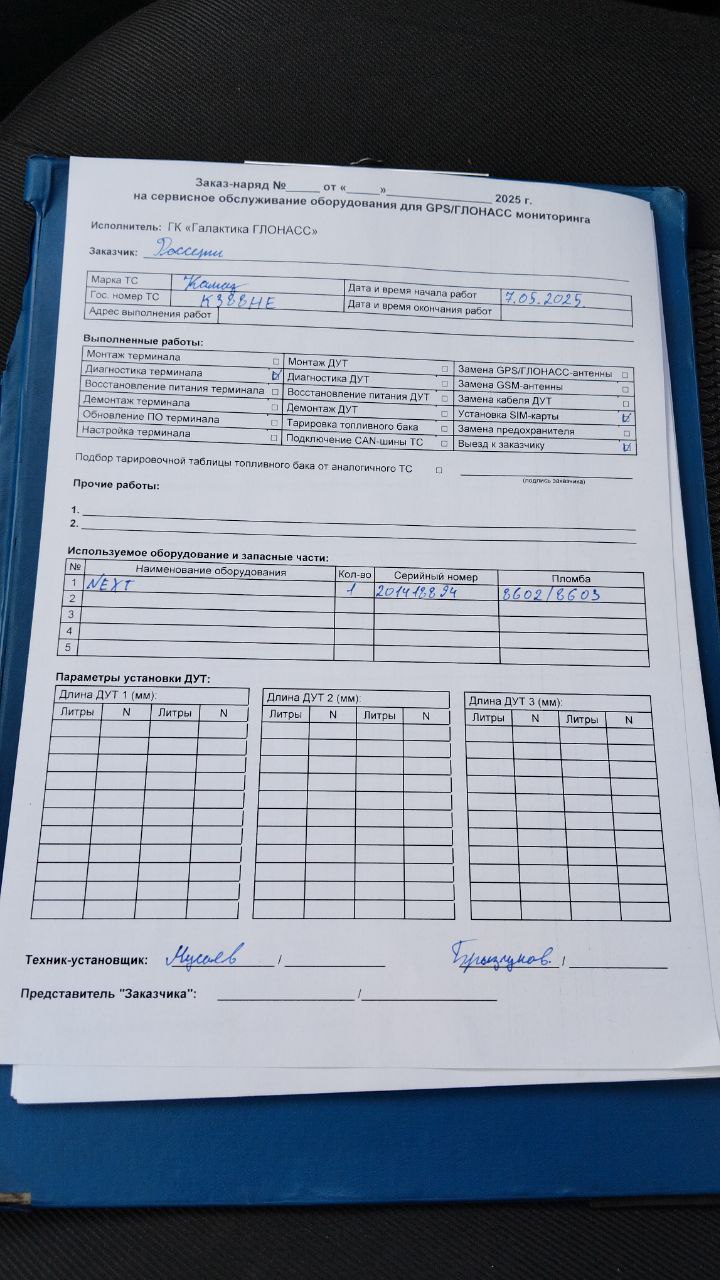 Заказ-наряд №_____ от «_____»________________ 2025 г.
на сервисное обслуживание оборудования для GPS/ГЛОНАСС мониторинга
Исполнитель: ГК «Галактика ГЛОНАСС»
Заказчик: Россети
Марка ТС Камаз Дата и время начала работ 7.05.2025.
Гос. номер ТС К388НЕ Дата и время окончания работ
Адрес выполнения работ
Выполненные работы:
Монтаж терминала □ Монтаж ДУТ □ Замена GPS/ГЛОНАСС-антенны □
Диагностика терминала ☑ Диагностика ДУТ □ Замена GSM-антенны □
Восстановление питания терминала □ Восстановление питания ДУТ □ Замена кабеля ДУТ □
Демонтаж терминала □ Демонтаж ДУТ □ Установка SIM-карты ☑
Обновление ПО терминала □ Тарировка топливного бака □ Замена предохранителя □
Настройка терминала □ Подключение CAN-шины ТС □ Выезд к заказчику ☑
Подбор тарировочной таблицы топливного бака от аналогичного ТС □
(подпись заказчика)
Прочие работы:
1.
2.
Используемое оборудование и запасные части:
№ Наименование оборудования Кол-во Серийный номер Пломба
1 NEXT 1 201418894 8602/8603
2
3
4
5
Параметры установки ДУТ:
Длина ДУТ 1 (мм): Длина ДУТ 2 (мм): Длина ДУТ 3 (мм):
Литры N Литры N Литры N Литры N Литры N Литры N
Техник-установщик: Мусаев / Брызгунов. /
Представитель "Заказчика": /